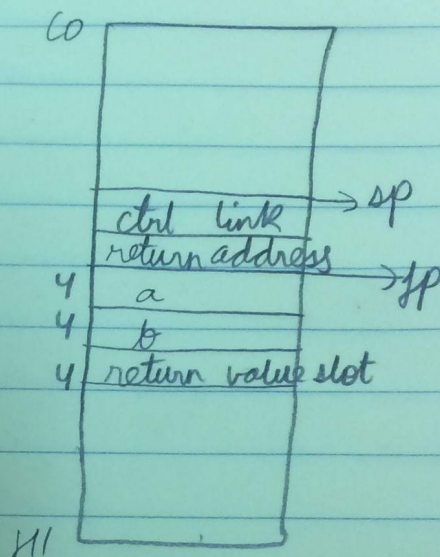 LO
sp
ctrl link
return address
fp
4 a
4 b
4 return value slot
HI